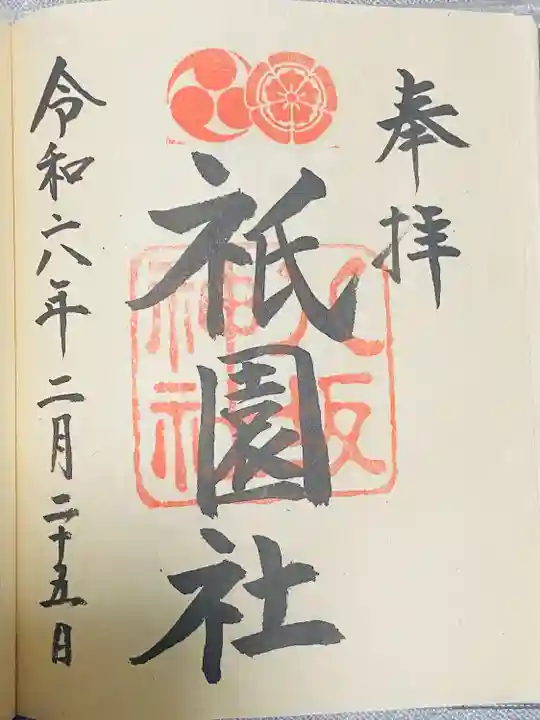 奉拝
祇園社
八坂神社
令和六年二月二十五日